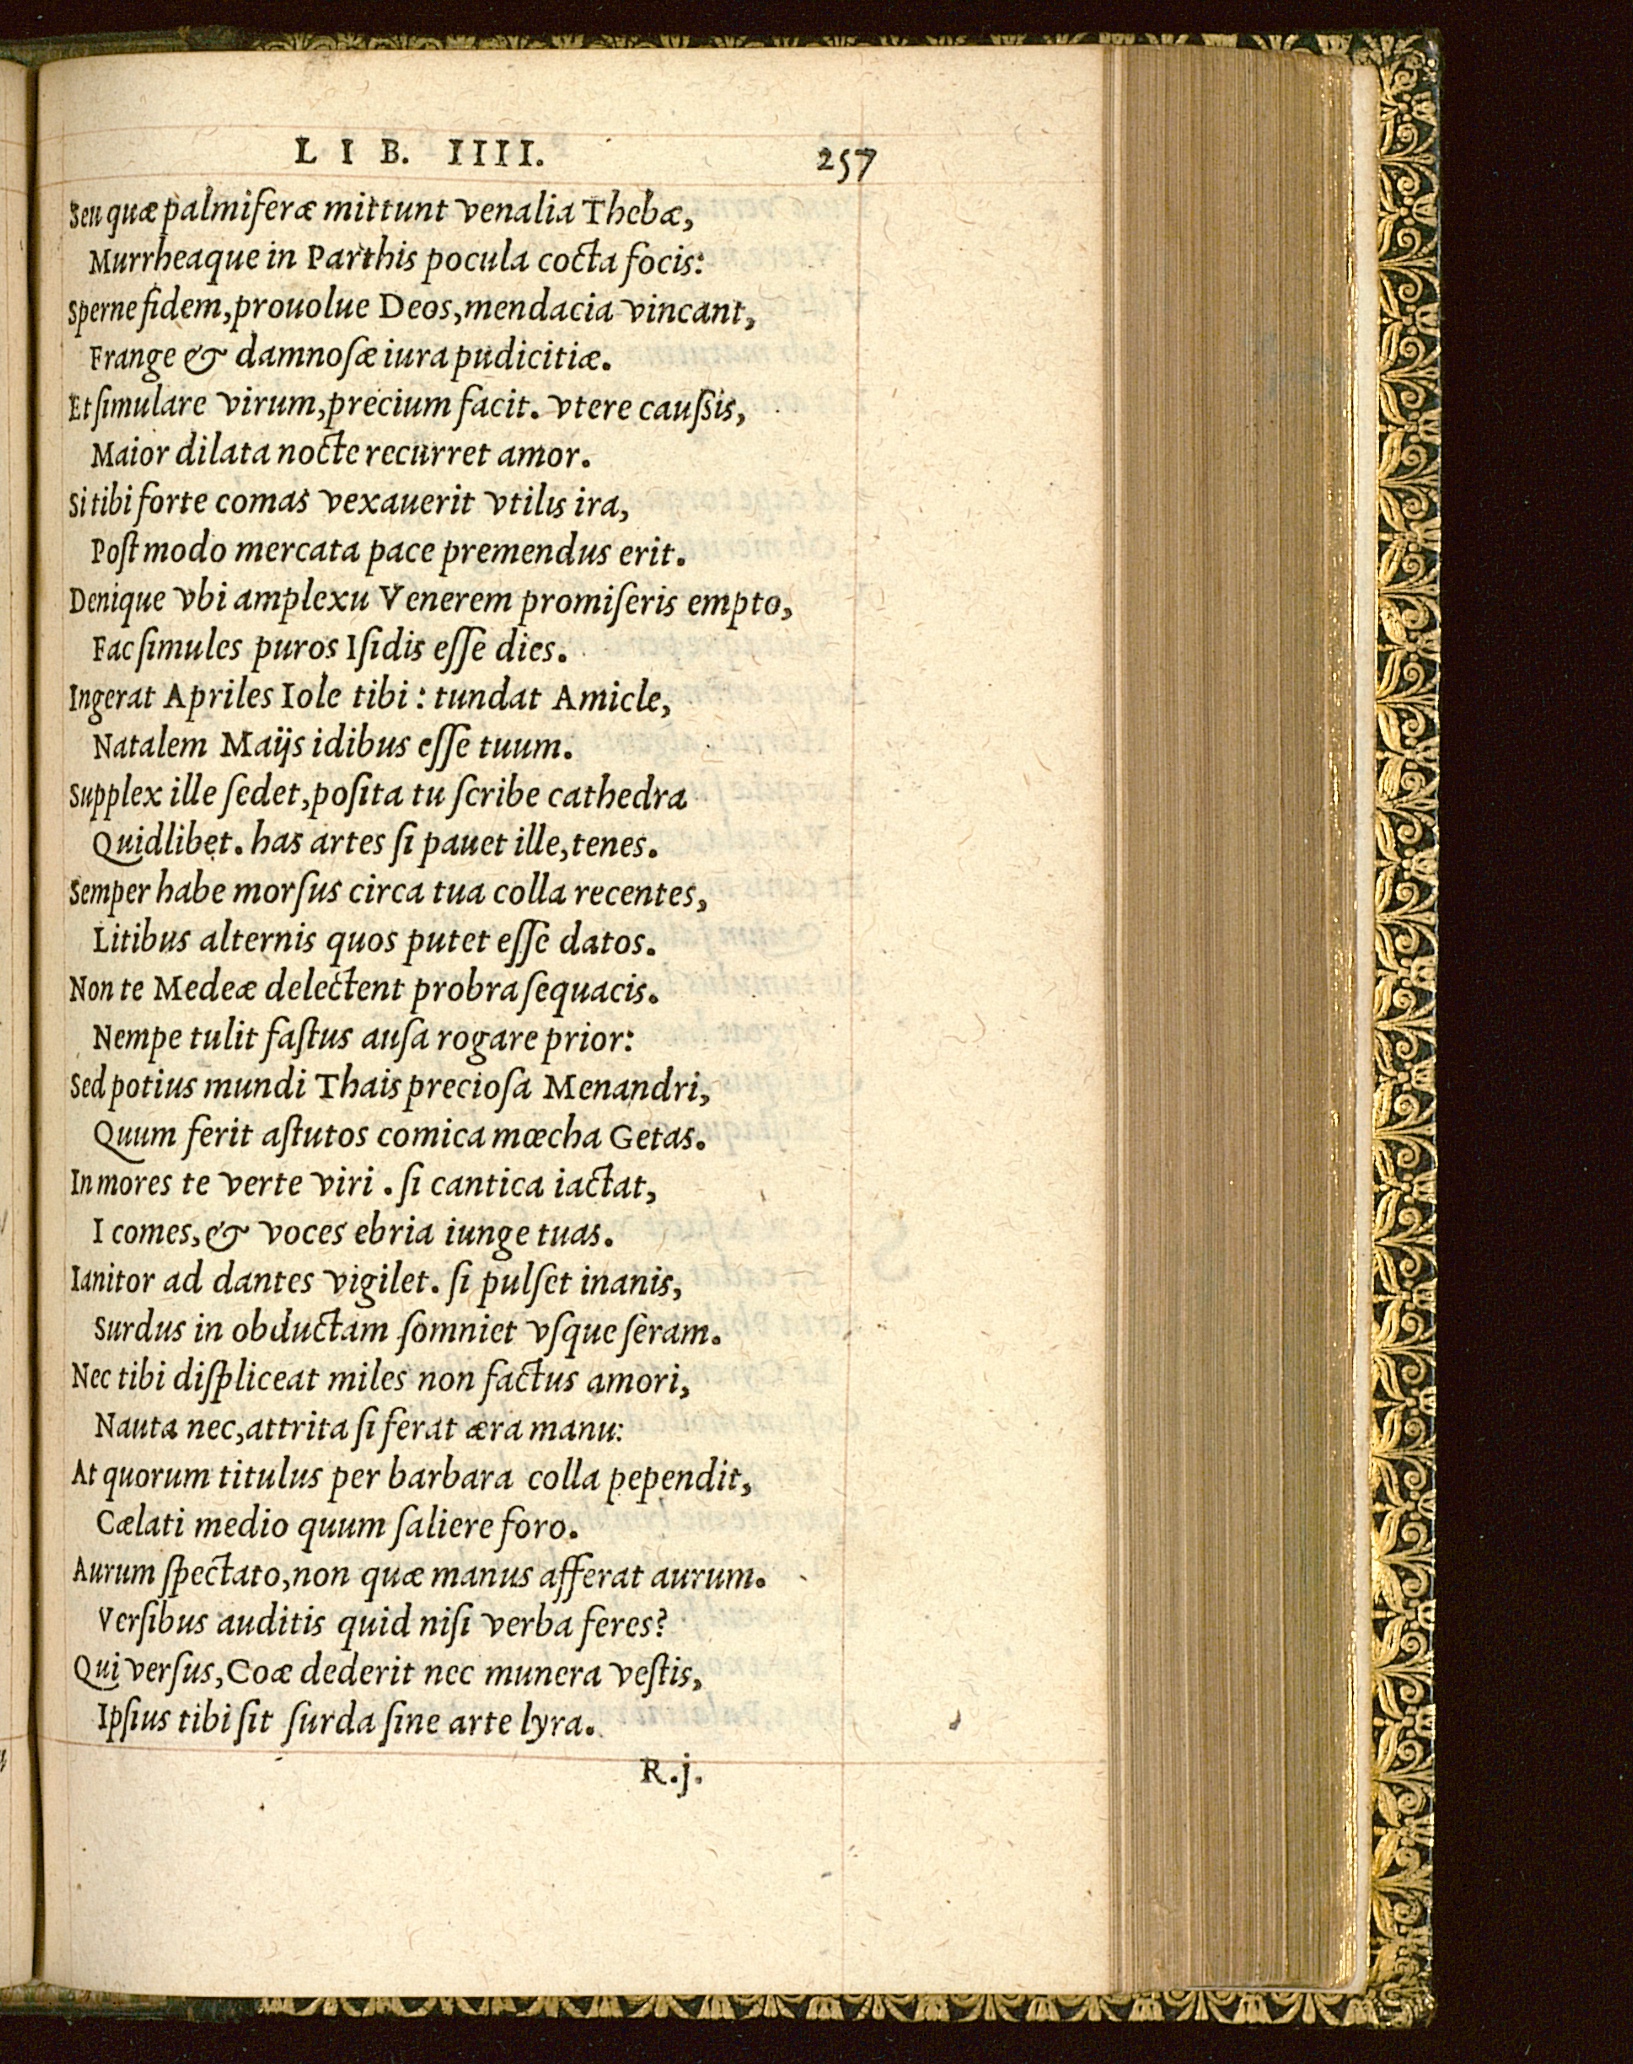 LIB. IIII. 257
Seu quæ palmiferæ mittunt venalia Thebæ,
Murrheaque in Parthis pocula cocta focis:
Sperne fidem, prouolue Deos, mendacia vincant,
Frange & damnoſæ iura pudicitiæ.
Et ſimulare virum, precium facit. vtere cauſsis,
Maior dilata nocte recurret amor.
Si tibi forte comas vexauerit vtilis ira,
Poſt modo mercata pace premendus erit.
Denique vbi amplexu Venerem promiſeris empto,
Fac ſimules puros Iſidis eſſe dies.
Ingerat Apriles Iole tibi: tundat Amicle,
Natalem Maijs idibus eſſe tuum.
Supplex ille ſedet, poſita tu ſcribe cathedra
Quidlibet. has artes ſi pauet ille, tenes.
Semper habe morſus circa tua colla recentes,
Litibus alternis quos putet eſſe datos.
Non te Medeæ delectent probra ſequacis.
Nempe tulit faſtus auſa rogare prior:
Sed potius mundi Thais precioſa Menandri,
Quum ferit aſtutos comica mœcha Getas.
In mores te verte viri. ſi cantica iactat,
I comes, & voces ebria iunge tuas.
Ianitor ad dantes vigilet. ſi pulſet inanis,
Surdus in obductam ſomniet vſque ſeram.
Nec tibi diſpliceat miles non factus amori,
Nauta nec, attrita ſi ferat æra manu:
At quorum titulus per barbara colla pependit,
Cælati medio quum ſaliere foro.
Aurum ſpectato, non quæ manus afferat aurum.
Verſibus auditis quid niſi verba feres?
Qui verſus, Coæ dederit nec munera veſtis,
Ipſius tibi ſit ſurda ſine arte lyra.
R.j.